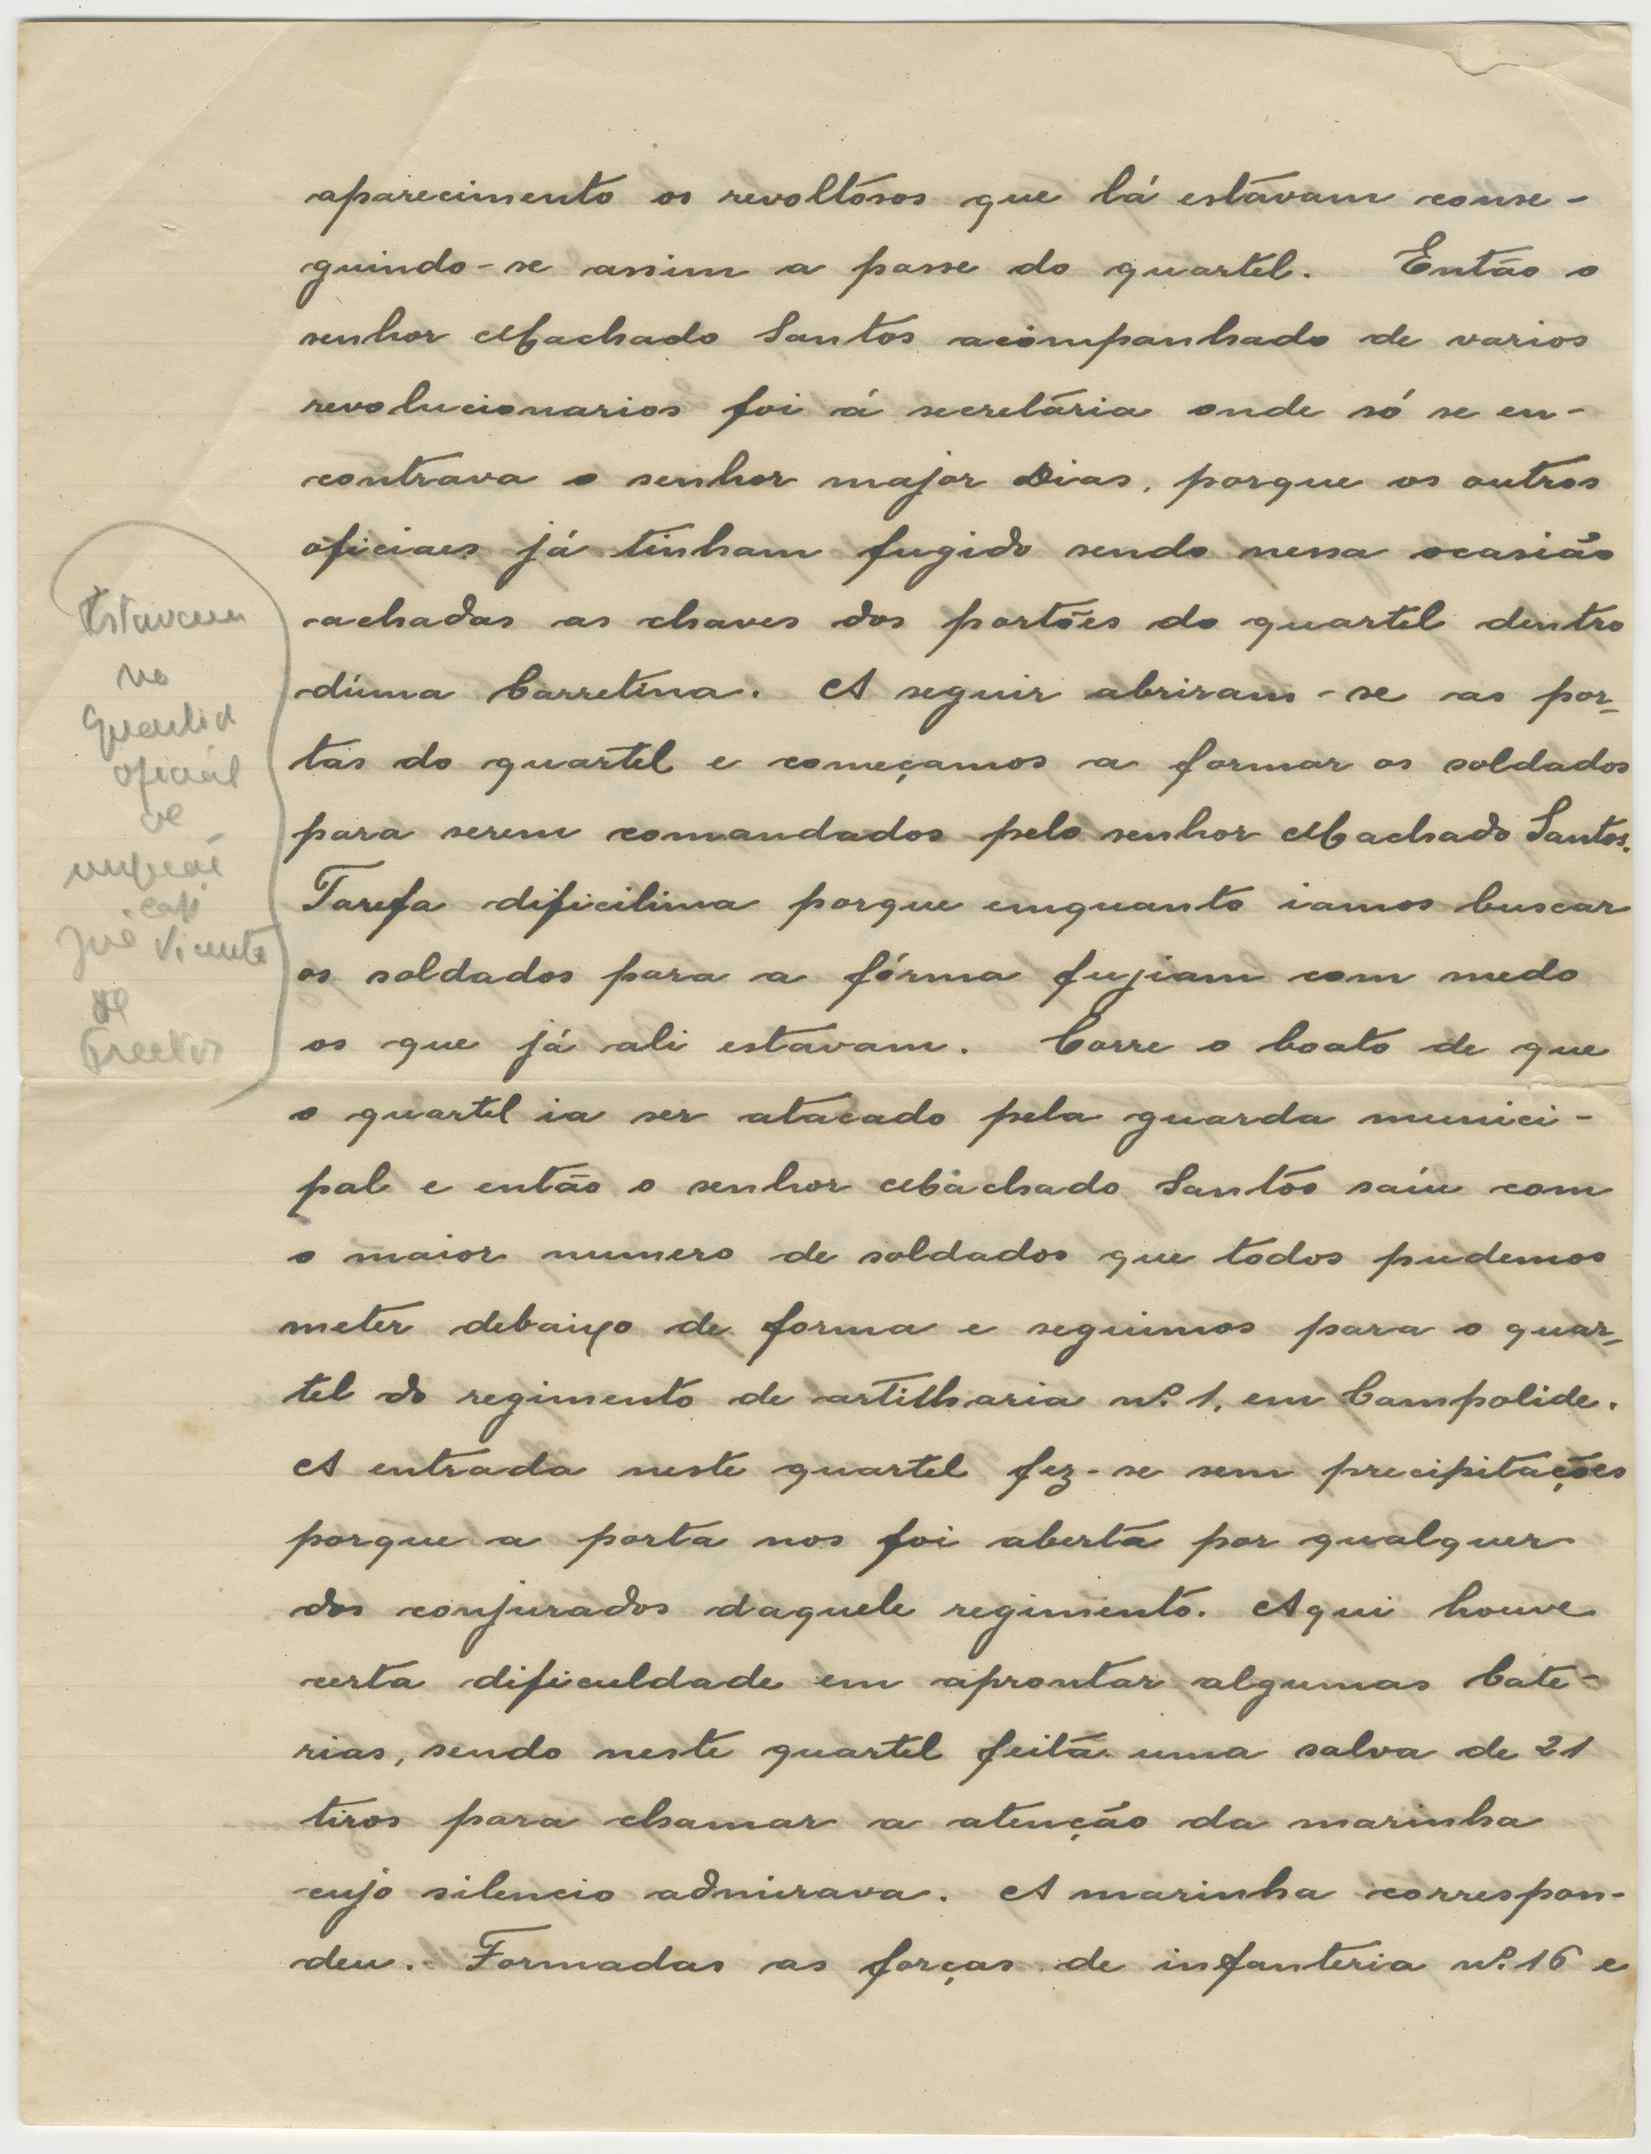 aparecimento os revoltósos que lá estávam conse-
guindo-se assim a posse do quartel. Então o
senhor Machado Santos acompanhado de varios
revolucionarios foi á secretária onde só se en-
contrava o senhor major Dias, porque os outros
oficiaes já tinham fugido sendo nessa ocasião
achadas as chaves dos portões do quartel dentro
dúma barretina. A seguir abriram-se as por-
tas do quartel e começamos a formar os soldados
para serem comandados pelo senhor Machado Santos.
Tarefa dificilima porque emquanto iamos buscar
os soldados para a fórma fujiam com medo
os que já ali estavam. Corre o boato de que
o quartel ia ser atacado pela guarda munici-
pal e então o senhor Machado Santos saíu com
o maior numero de soldados que todos pudemos
meter debaixo de forma e seguimos para o quar-
tel do regimento de artilharia nº. 1, em Campolide.
A entrada neste quartel fez-se sem precipitações
porque a porta nos foi aberta por qualquer
dos conjurados daquele regimento. Aqui houve
certa dificuldade em aprontar algumas bate-
rias, sendo neste quartel feita uma salva de 21
tiros para chamar a atenção da marinha
cujo silencio admirava. A marinha correspon-
deu. Formadas as forças de infanteria nº. 16 e
Estavam
no
oficial
de
cap
José Vicente
de